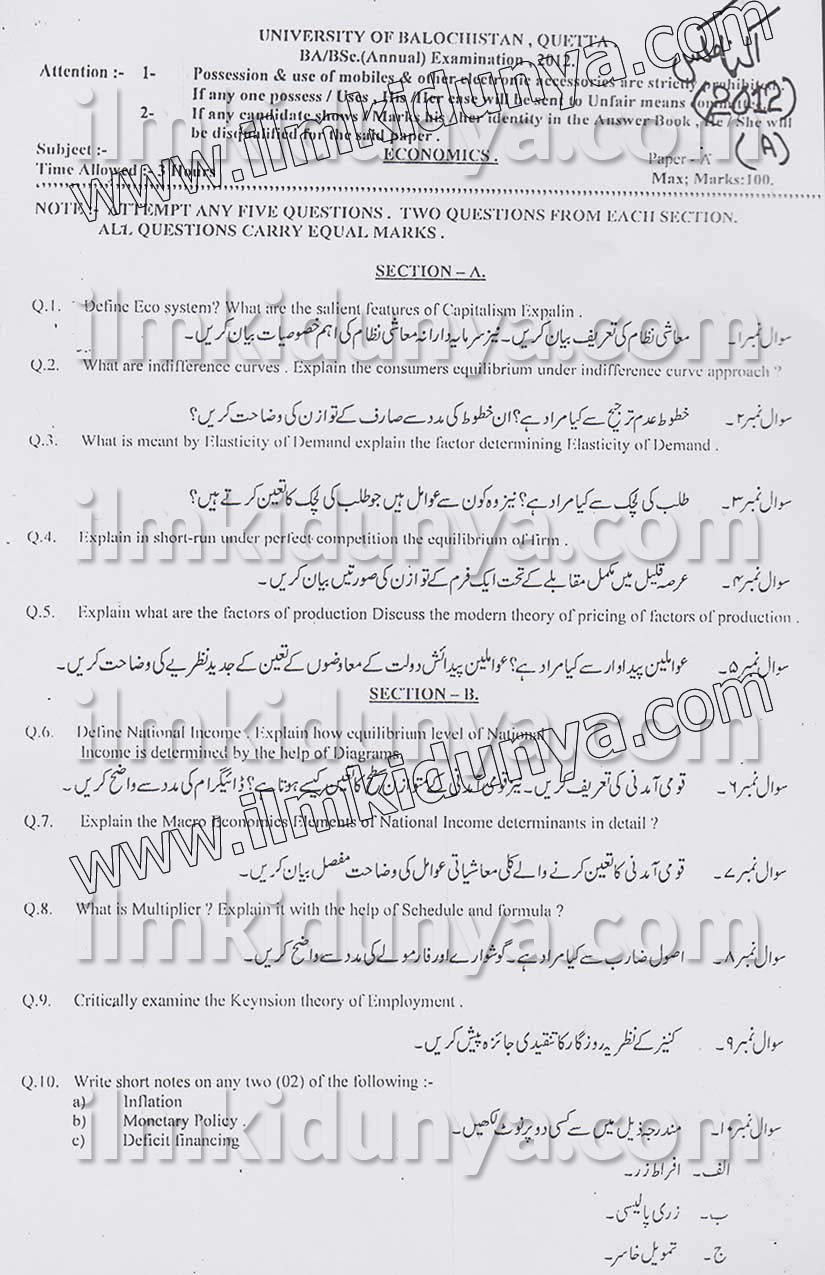 UNIVERSITY OF BALOCHISTAN , QUETTA .
BA/BSc.(Annual) Examination , 2012.
Attention :- 1- Possession & use of mobiles & other electronic accessories are strictly prohibited
If any one possess / Uses . His /Her case will be sent to Unfair means committee
2- If any candidate shows / Marks his /her identity in the Answer Book , He / She will
be disqualified for the said paper .
2012
(A)
Subject :- ECONOMICS . Paper - A
Time Allowed :- 3 Hours Max; Marks:100.
NOTE :- ATTEMPT ANY FIVE QUESTIONS . TWO QUESTIONS FROM EACH SECTION.
ALL QUESTIONS CARRY EQUAL MARKS .
SECTION – A.
Q.1. Define Eco system? What are the salient features of Capitalism Expalin .
سوال نمبر۱۔ معاشی نظام کی تعریف بیان کریں۔ نیز سرمایہ دارانہ معاشی نظام کی اہم خصوصیات بیان کریں۔
Q.2. What are indifference curves . Explain the consumers equilibrium under indifference curve approach ?
سوال نمبر۲۔ خطوط عدم ترجیح سے کیا مراد ہے؟ ان خطوط کی مدد سے صارف کے توازن کی وضاحت کریں؟
Q.3. What is meant by Elasticity of Demand explain the factor determining Elasticity of Demand .
سوال نمبر۳۔ طلب کی لچک سے کیا مراد ہے؟ نیز وہ کون سے عوامل ہیں جو طلب کی لچک کا تعین کرتے ہیں؟
Q.4. Explain in short-run under perfect competition the equilibrium of firm .
سوال نمبر۴۔ عرصہ قلیل میں مکمل مقابلے کے تحت ایک فرم کے توازن کی صورتیں بیان کریں۔
Q.5. Explain what are the factors of production Discuss the modern theory of pricing of factors of production .
سوال نمبر۵۔ عواملین پیداوار سے کیا مراد ہے؟ عواملین پیدائش دولت کے معاوضوں کے تعین کے جدید نظریے کی وضاحت کریں۔
SECTION – B.
Q.6. Define National Income . Explain how equilibrium level of National
Income is determined by the help of Diagrams
سوال نمبر۶۔ قومی آمدنی کی تعریف کریں۔ نیز قومی آمدنی کے متوازن سطح کا تعین کیسے ہوتا ہے؟ ڈائیگرام کی مدد سے واضح کریں۔
Q.7. Explain the Macro Economics Elements of National Income determinants in detail ?
سوال نمبر۷۔ قومی آمدنی کا تعین کرنے والے کلی معاشیاتی عوامل کی وضاحت مفصل بیان کریں۔
Q.8. What is Multiplier ? Explain it with the help of Schedule and formula ?
سوال نمبر۸۔ اصول ضارب سے کیا مراد ہے۔ گوشوارے اور فارمولے کی مدد سے واضح کریں۔
Q.9. Critically examine the Keynsion theory of Employment .
سوال نمبر۹۔ کنیز کے نظریہ روزگار کا تنقیدی جائزہ پیش کریں۔
Q.10. Write short notes on any two (02) of the following :-
a) Inflation
b) Monetary Policy .
c) Deficit financing
سوال نمبر۱۰۔ مندرجہ ذیل میں سے کسی دو پر نوٹ لکھیں۔
الف۔ افراط زر۔
ب۔ زری پالیسی۔
ج۔ تمویل خاسر۔
www.ilmkidunya.com
www.ilmkidunya.com
ilmkidunya.com
ilmkidunya.com
ilmkidunya.com
ilmkidunya.com
ilmkidunya.com
ilmkidunya.com